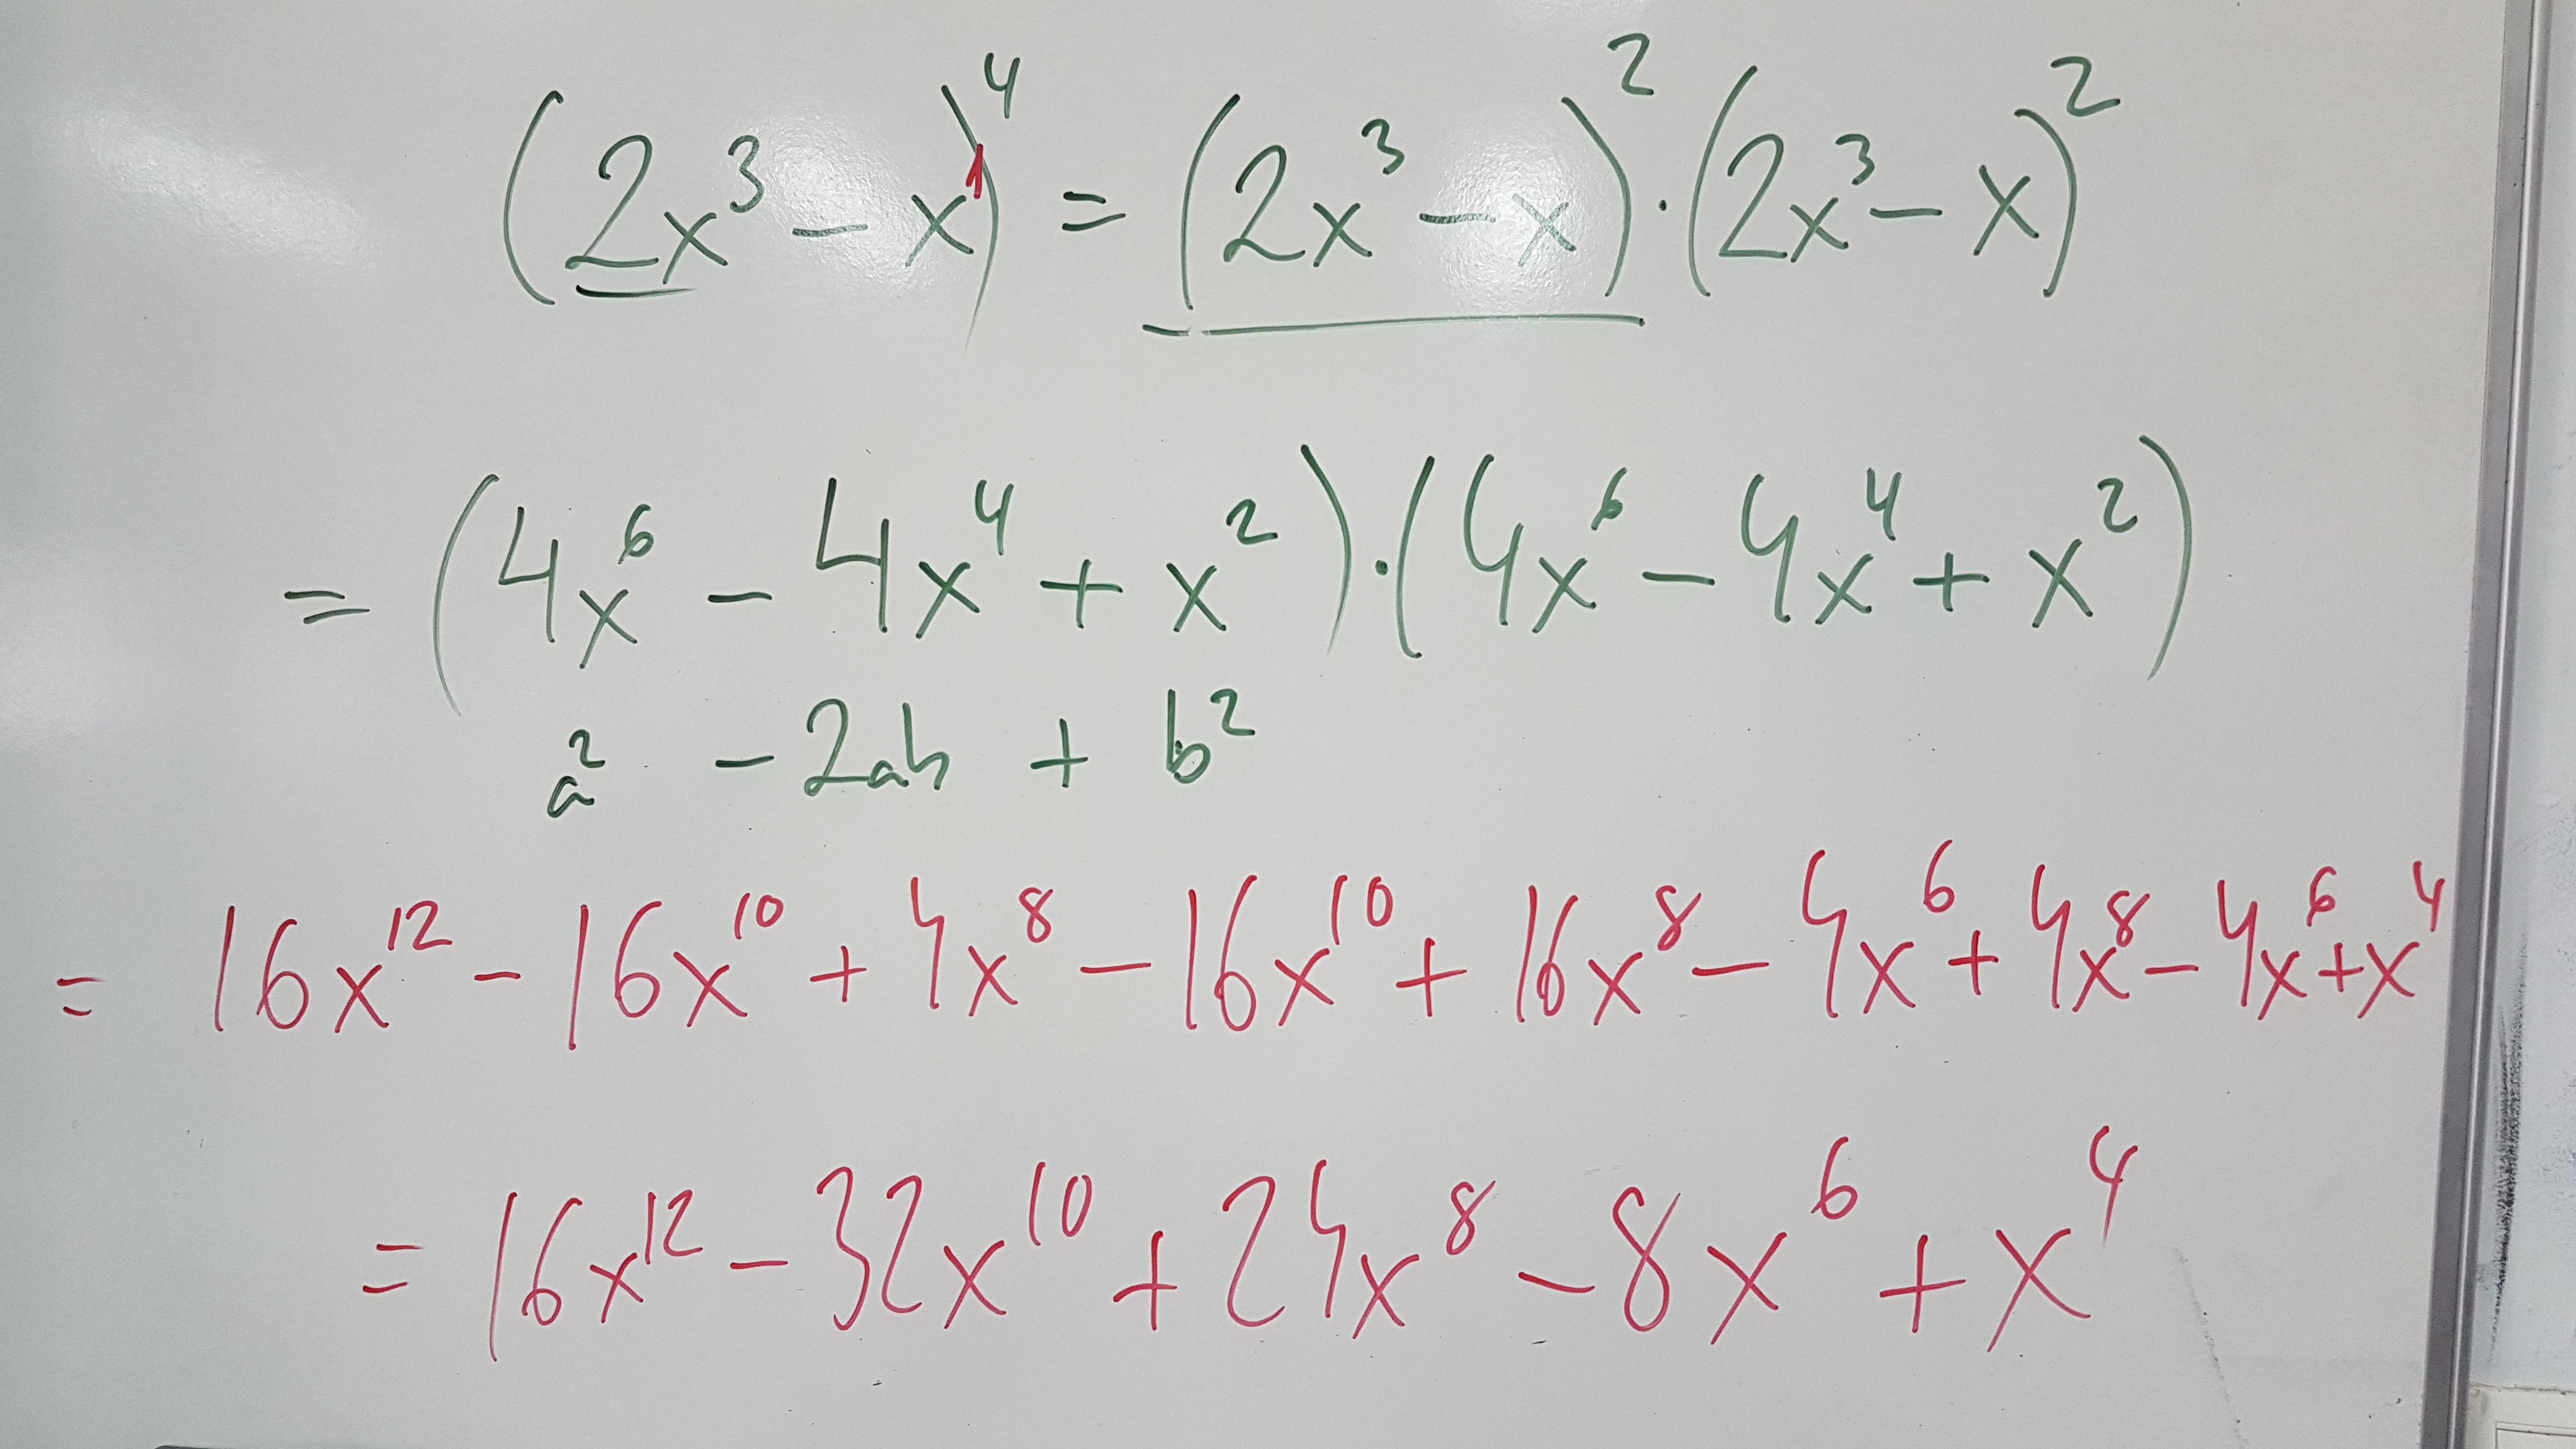 (2x³ - x¹)⁴ = (2x³ - x)² · (2x³ - x)²
= (4x⁶ - 4x⁴ + x²) · (4x⁶ - 4x⁴ + x²)
a² - 2ab + b²
= 16x¹² - 16x¹⁰ + 4x⁸ - 16x¹⁰ + 16x⁸ - 4x⁶ + 4x⁸ - 4x⁶ + x⁴
= 16x¹² - 32x¹⁰ + 24x⁸ - 8x⁶ + x⁴